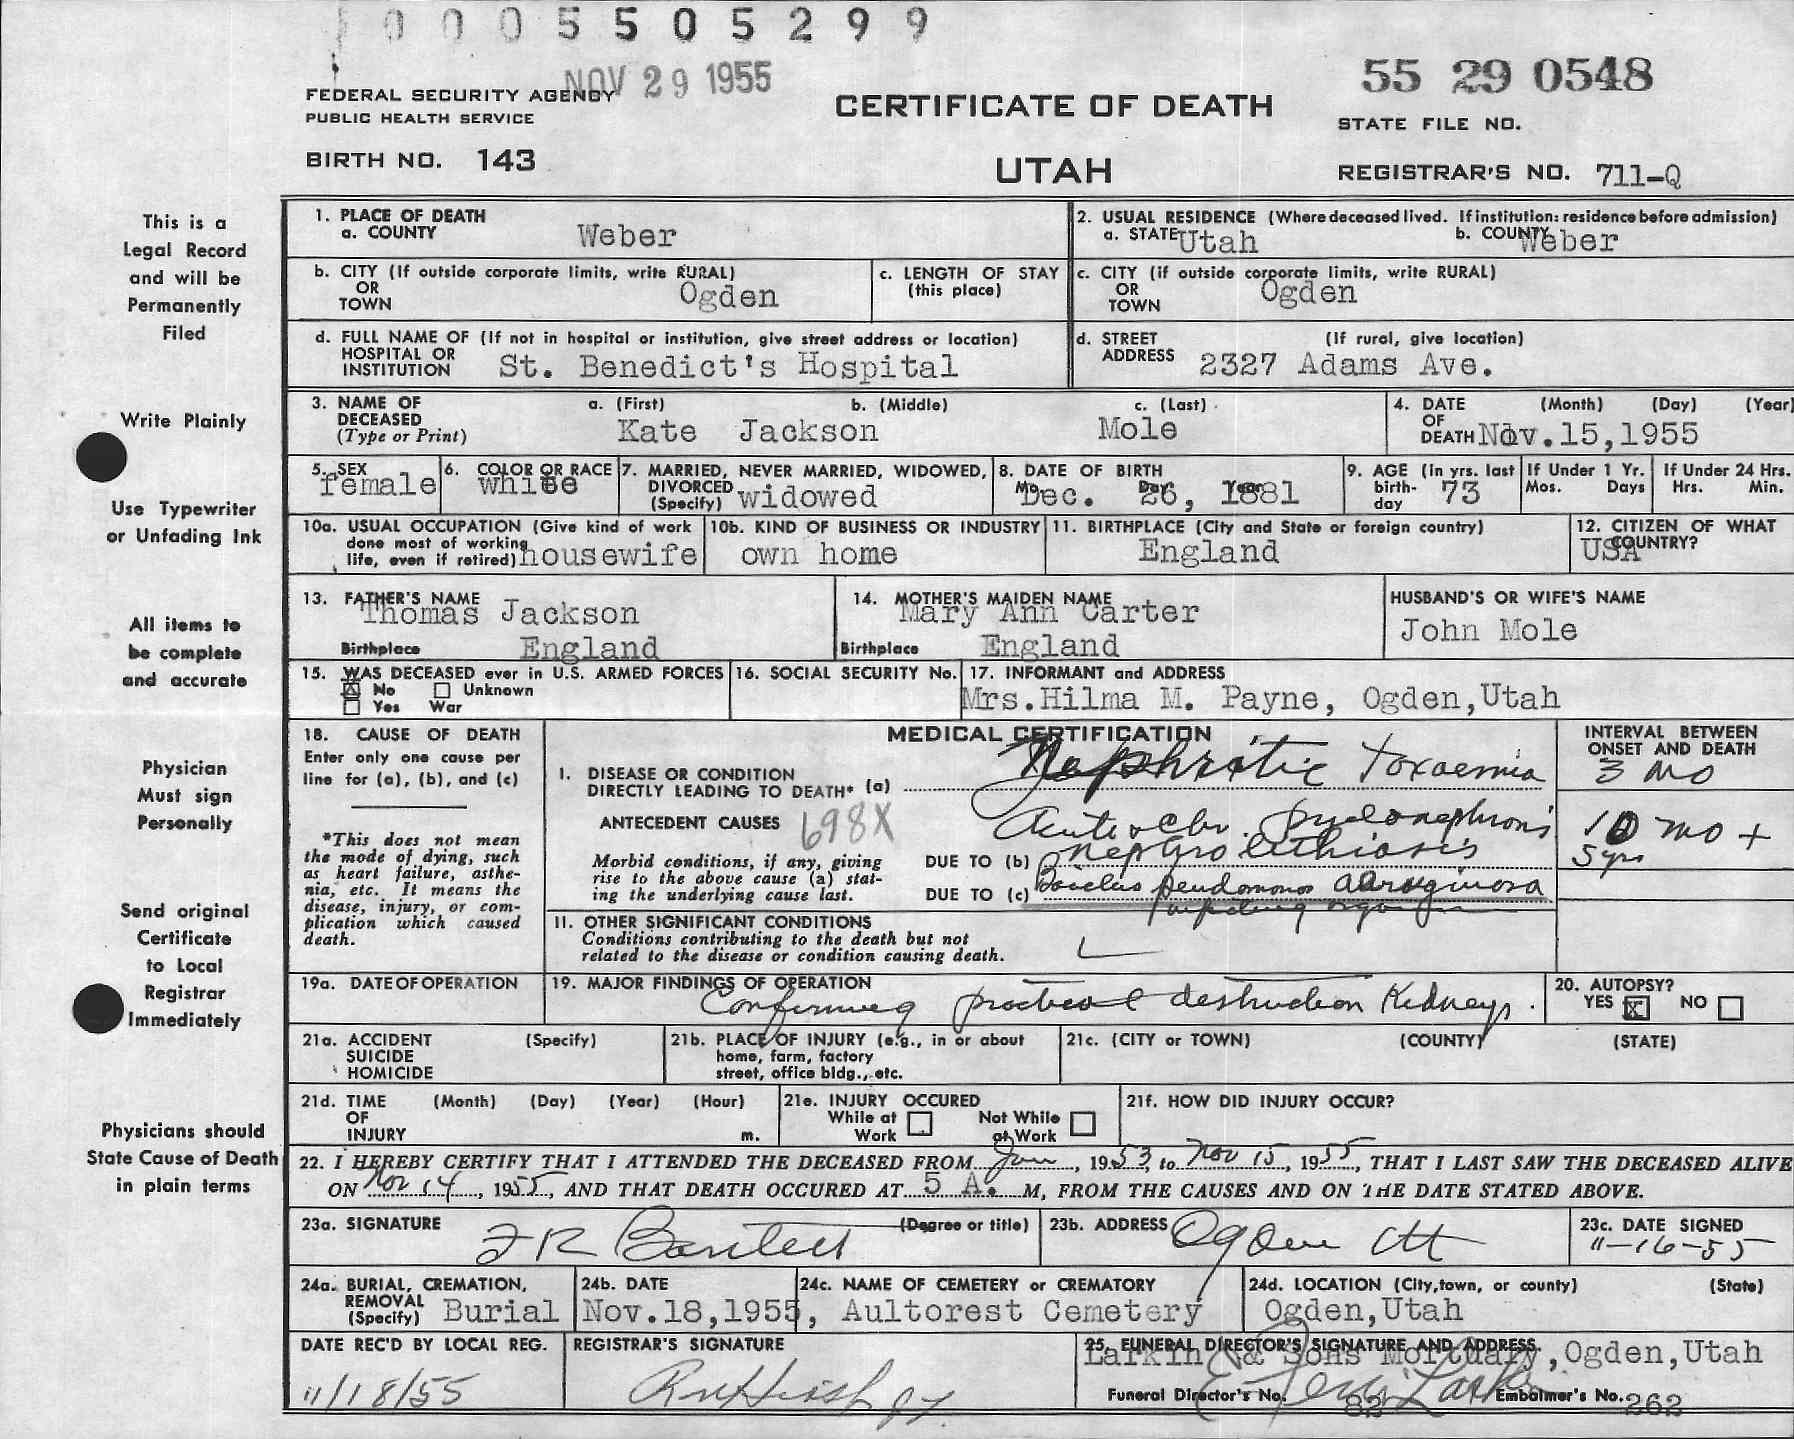 0005505299
NOV 29 1955
55 29 0548
FEDERAL SECURITY AGENCY
PUBLIC HEALTH SERVICE
CERTIFICATE OF DEATH
STATE FILE NO.
BIRTH NO. 143
UTAH
REGISTRAR'S NO. 711-Q
This is a
Legal Record
and will be
Permanently
Filed
Write Plainly
Use Typewriter
or Unfading Ink
All items to
be complete
and accurate
Physician
Must sign
Personally
Send original
Certificate
to Local
Registrar
Immediately
Physicians should
State Cause of Death
in plain terms
1. PLACE OF DEATH
a. COUNTY Weber
2. USUAL RESIDENCE (Where deceased lived. If institution: residence before admission)
a. STATE Utah b. COUNTY Weber
b. CITY (If outside corporate limits, write RURAL)
OR
TOWN Ogden
c. LENGTH OF STAY
(this place)
c. CITY (if outside corporate limits, write RURAL)
OR
TOWN Ogden
d. FULL NAME OF (If not in hospital or institution, give street address or location)
HOSPITAL OR
INSTITUTION St. Benedict's Hospital
d. STREET (If rural, give location)
ADDRESS 2327 Adams Ave.
3. NAME OF a. (First) b. (Middle) c. (Last)
DECEASED
(Type or Print) Kate Jackson Mole
4. DATE (Month) (Day) (Year)
OF
DEATH Nov.15,1955
5. SEX
female
6. COLOR OR RACE
white
7. MARRIED, NEVER MARRIED, WIDOWED,
DIVORCED
(Specify) widowed
8. DATE OF BIRTH
Mo. Day Year
Dec. 26, 1881
9. AGE (In yrs. last
birth-
day 73
If Under 1 Yr.
Mos. Days
If Under 24 Hrs.
Hrs. Min.
10a. USUAL OCCUPATION (Give kind of work
done most of working
life, even if retired) housewife
10b. KIND OF BUSINESS OR INDUSTRY
own home
11. BIRTHPLACE (City and State or foreign country)
England
12. CITIZEN OF WHAT
COUNTRY?
USA
13. FATHER'S NAME
Thomas Jackson
Birthplace England
14. MOTHER'S MAIDEN NAME
Mary Ann Carter
Birthplace England
HUSBAND'S OR WIFE'S NAME
John Mole
15. WAS DECEASED ever in U.S. ARMED FORCES
X No Unknown
Yes War
16. SOCIAL SECURITY No.
17. INFORMANT and ADDRESS
Mrs.Hilma M. Payne, Ogden,Utah
18. CAUSE OF DEATH
Enter only one cause per
line for (a), (b), and (c)
*This does not mean
the mode of dying, such
as heart failure, asthe-
nia, etc. It means the
disease, injury, or com-
plication which caused
death.
MEDICAL CERTIFICATION
INTERVAL BETWEEN
ONSET AND DEATH
I. DISEASE OR CONDITION
DIRECTLY LEADING TO DEATH* (a) Nephritic Toxaemia 3 mo
ANTECEDENT CAUSES 698X
Acute & Chr. pyelonephrosis 10 mo +
Morbid conditions, if any, giving
rise to the above cause (a) stat-
ing the underlying cause last.
DUE TO (b) nephro lithiasis 5 yrs
DUE TO (c) Bacillus pseudomonas aeruginosa
II. OTHER SIGNIFICANT CONDITIONS
Conditions contributing to the death but not
related to the disease or condition causing death.
19a. DATE OF OPERATION
19. MAJOR FINDINGS OF OPERATION
destruction Kidneys.
20. AUTOPSY?
YES X NO
21a. ACCIDENT (Specify)
SUICIDE
HOMICIDE
21b. PLACE OF INJURY (e.g., in or about
home, farm, factory
street, office bldg., etc.
21c. (CITY or TOWN) (COUNTY) (STATE)
21d. TIME (Month) (Day) (Year) (Hour)
OF
INJURY m.
21e. INJURY OCCURED
While at Not While
Work at Work
21f. HOW DID INJURY OCCUR?
22. I HEREBY CERTIFY THAT I ATTENDED THE DECEASED FROM Jan, 1953, to Nov 15, 1955, THAT I LAST SAW THE DECEASED ALIVE
ON Nov 14, 1955, AND THAT DEATH OCCURED AT 5 A. M, FROM THE CAUSES AND ON THE DATE STATED ABOVE.
23a. SIGNATURE (Degree or title)
F R Bartlett
23b. ADDRESS
Ogden Ut
23c. DATE SIGNED
11-16-55
24a. BURIAL, CREMATION,
REMOVAL
(Specify) Burial
24b. DATE
Nov.18,1955,
24c. NAME OF CEMETERY or CREMATORY
Aultorest Cemetery
24d. LOCATION (City, town, or county) (State)
Ogden,Utah
DATE REC'D BY LOCAL REG.
11/18/55
REGISTRAR'S SIGNATURE
25. FUNERAL DIRECTOR'S SIGNATURE AND ADDRESS.
Larkin & Sons Mortuary,Ogden,Utah
Funeral Director's No. 82 Embalmer's No. 262